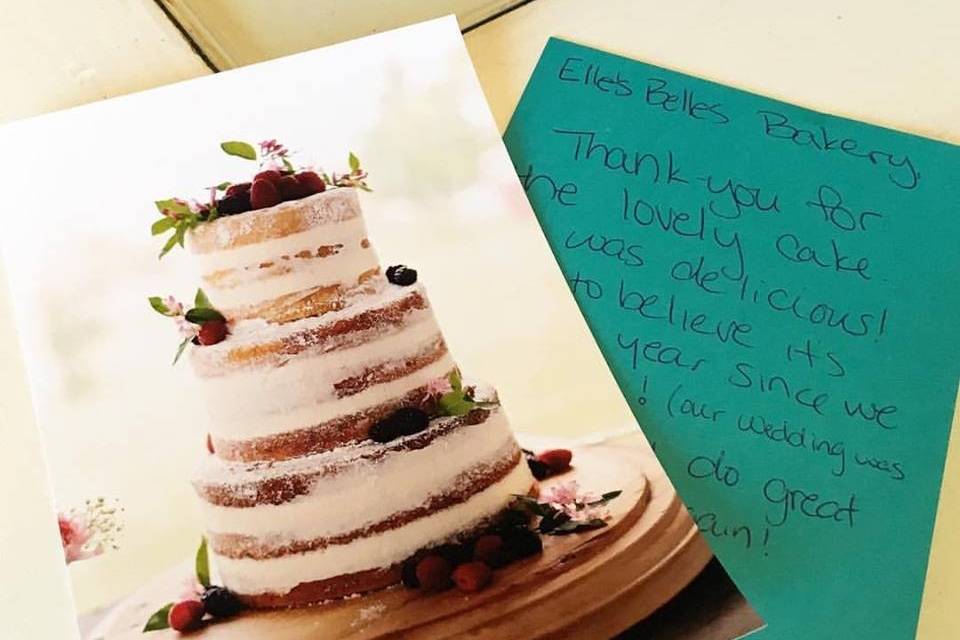 Elle's Belle's Bakery,
Thank-you for
the lovely cake.
was delicious!
to believe it's
year since we
! (our wedding was
do great
!